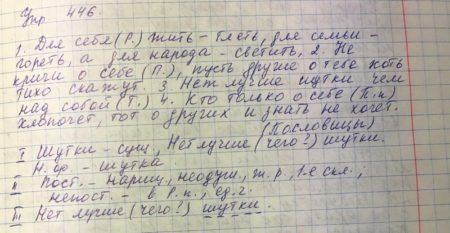 Упр 446.
1. Для себя (Р.) жить – тлеть, для семьи –
гореть, а для народа – светить, 2. Не
кричи о себе (П.), пусть другие о тебе хоть
тихо скажут. 3. Нет лучше шутки чем
над собой (Т.) 4. Кто только о себе (П.п)
хлопочет, тот о других и знать не хочет.
(Пословицы)
I Шутки – сущ., Нет лучше (чего?) шутки.
Н. ф – шутка.
II Пост. – нариц., неодуш., ж.р., 1-е скл.;
непост. – в Р.п., ед.ч.
III Нет лучше (чего?) шутки.